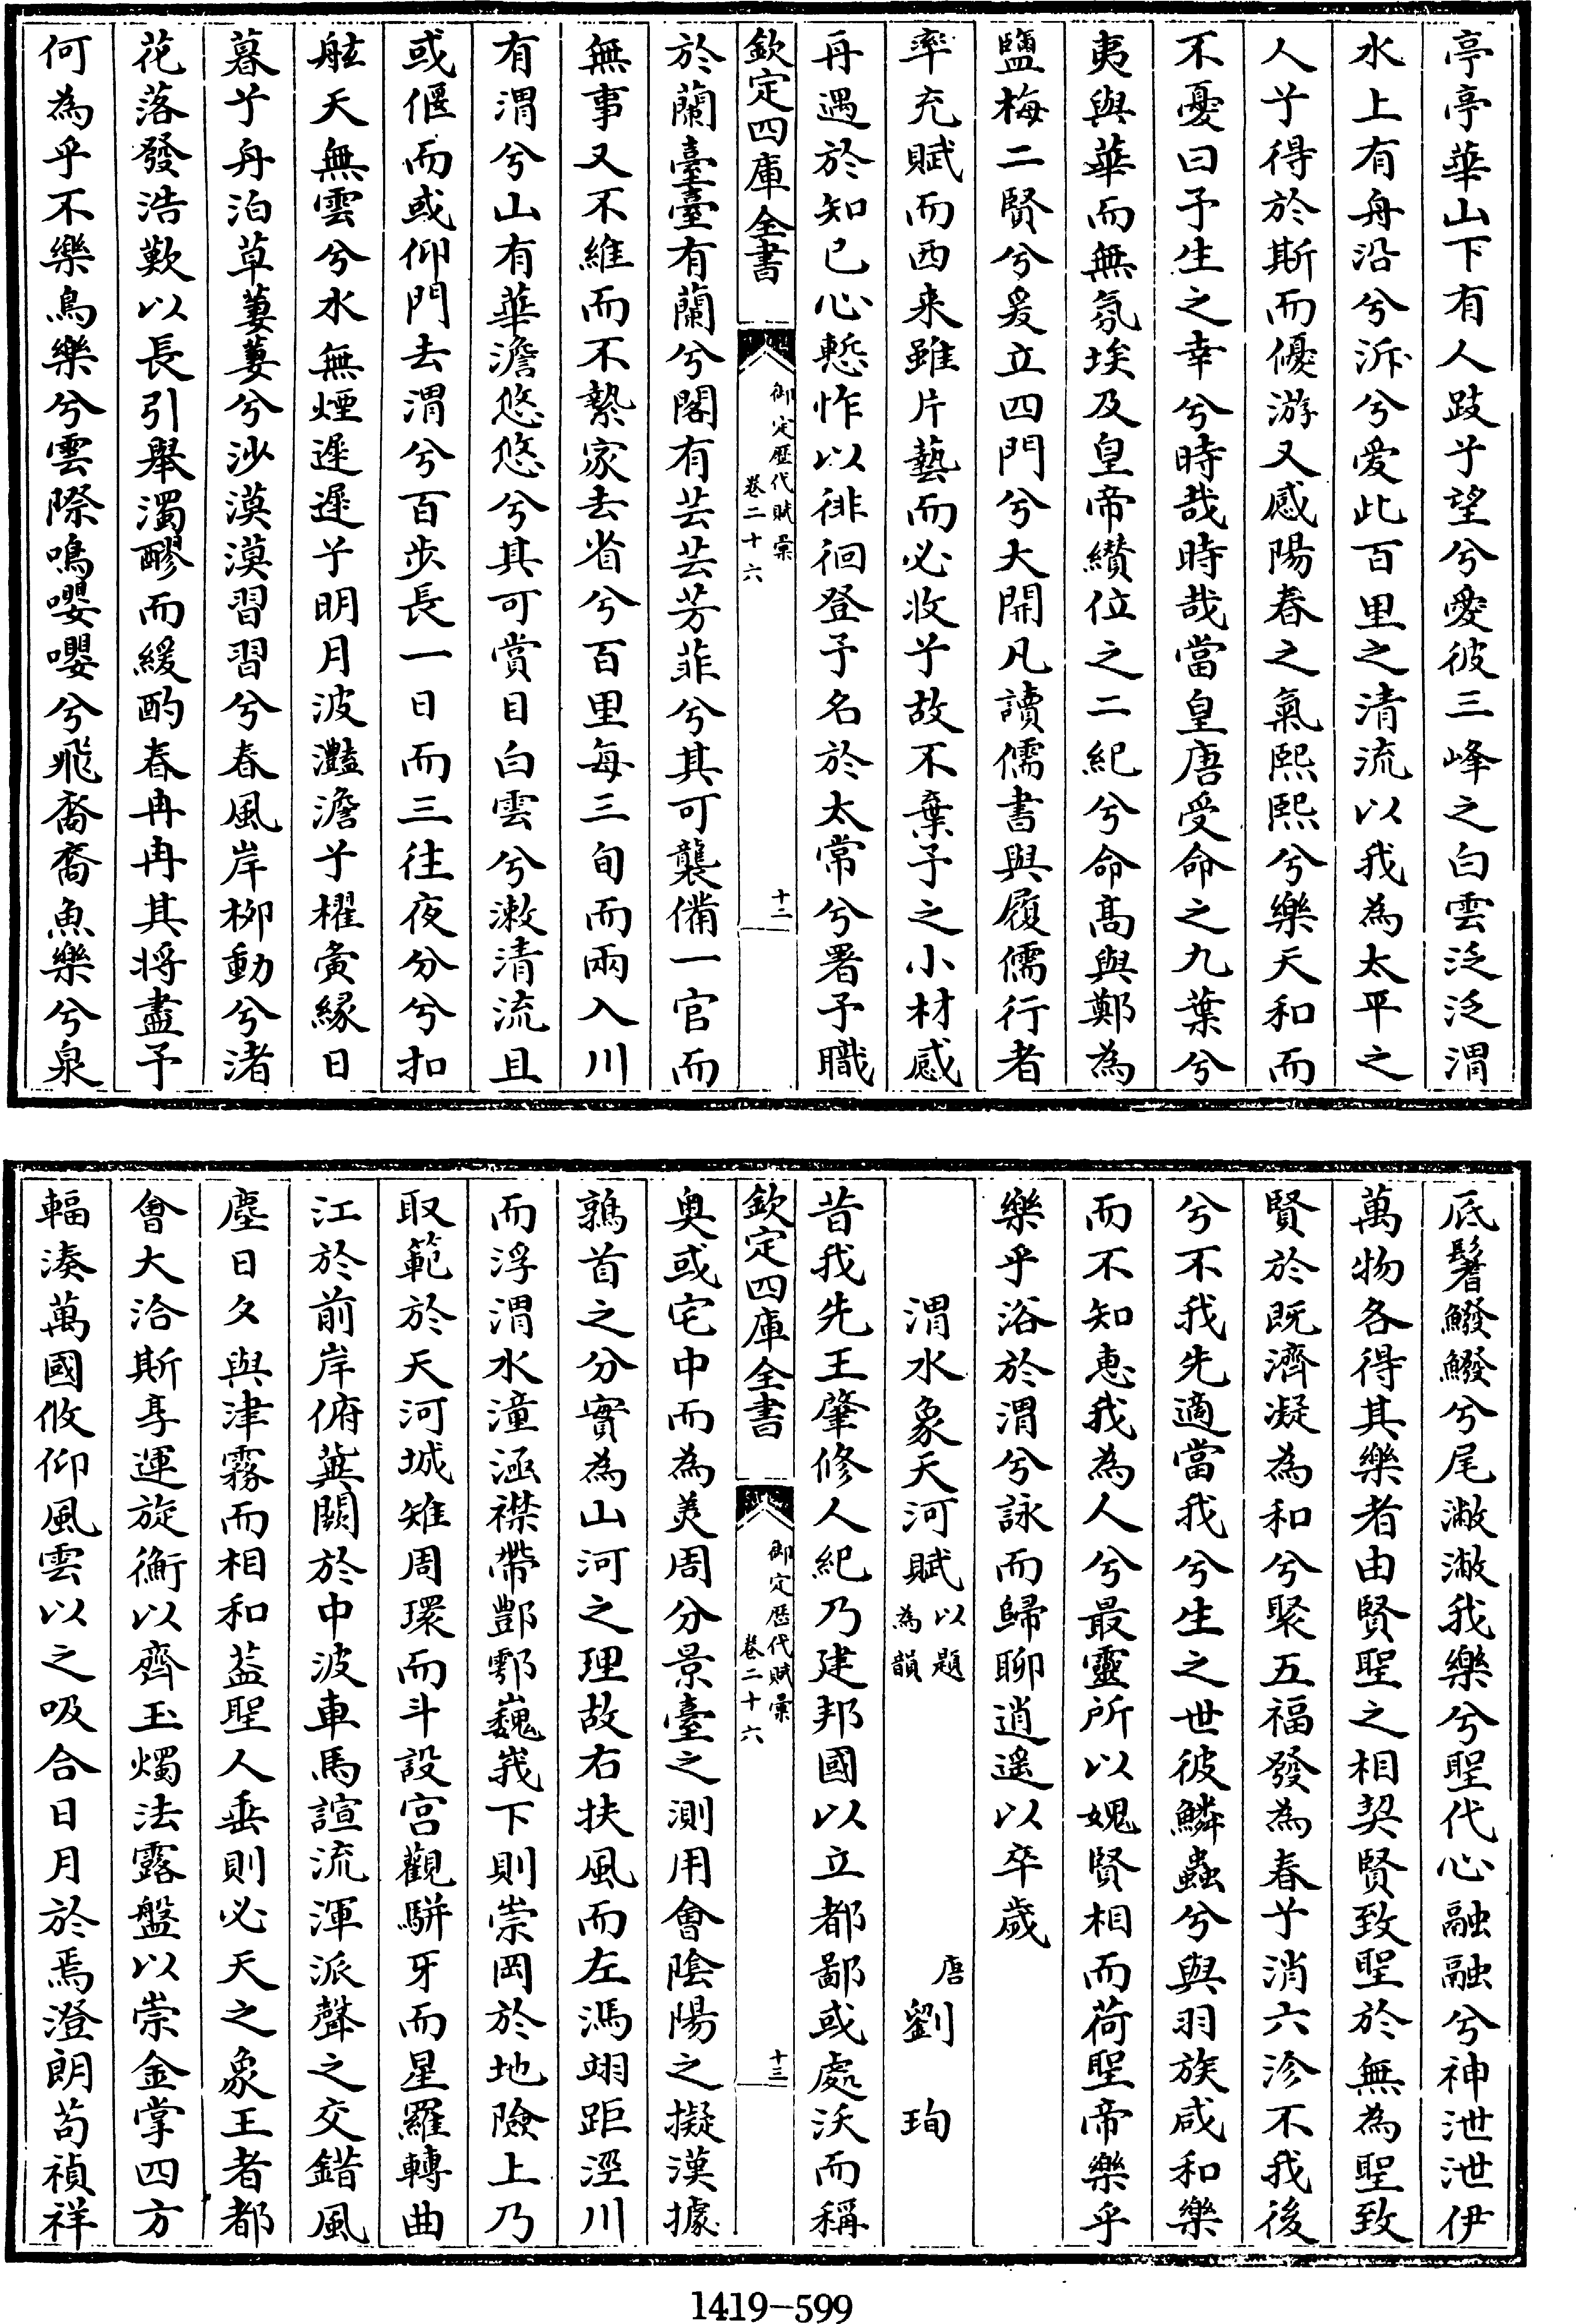 亭亭華山下有人跂予望兮愛彼三峰之白雲泛泛渭
水上有舟沿兮泝兮愛此百里之清流以我為太平之
人兮得於斯而優游又感陽春之氣熙熙兮樂天和而
不憂曰予生之幸兮時哉時哉當皇唐受命之九葉兮
夷與華而無氛埃及皇帝纘位之二紀兮命高與鄭為
鹽梅二賢兮爰立四門兮大開凡讀儒書與履儒行者
率充賦而西来雖片藝而必收兮故不棄予之小材感
再遇於知已心慙怍以徘徊登予名於太常兮署予職
欽定四庫全書
御定歴代賦彙
卷二十六
十二
於蘭臺臺有蘭兮閣有芸芸芳菲兮其可襲備一官而
無事又不維而不縶家去省兮百里每三旬而兩入川
有渭兮山有華澹悠悠兮其可賞目白雲兮漱清流且
或偃而或仰門去渭兮百步長一日而三往夜分兮扣
舷天無雲兮水無煙遲遲兮明月波灩澹兮櫂夤緣日
暮兮舟泊草萋萋兮沙漠漠習習兮春風岸柳動兮渚
花落發浩歎以長引舉濁醪而緩酌春冉冉其将盡予
何為乎不樂鳥樂兮雲際鳴嚶嚶兮飛裔裔魚樂兮泉
底鬐鱍鱍兮尾潎潎我樂兮聖代心融融兮神泄泄伊
萬物各得其樂者由賢聖之相契賢致聖於無為聖致
賢於既濟凝為和兮聚五福發為春兮消六沴不我後
兮不我先適當我兮生之世彼鱗蟲兮與羽族咸和樂
而不知惠我為人兮最靈所以媿賢相而荷聖帝樂乎
樂乎浴於渭兮詠而歸聊逍遥以卒歲
渭水象天河賦以題為韻
唐劉珣
昔我先王肇修人紀乃建邦國以立都鄙或處沃而稱
欽定四庫全書
御定歴代賦彙
卷二十六
十三
奥或宅中而為美周分景臺之測用會陰陽之擬漢據
鶉首之分實為山河之理故右扶風而左馮翊距涇川
而浮渭水潼涵襟帶酆鄠巍峩下則崇岡於地險上乃
取範於天河城雉周環而斗設宫觀駢牙而星羅轉曲
江於前岸俯冀闕於中波車馬諠流渾派聲之交錯風
塵日久與津霧而相和葢聖人垂則必天之象王者都
會大洽斯享運旋衡以齊玉燭法露盤以崇金掌四方
輻湊萬國攸仰風雲以之吸合日月於焉澄朗苟禎祥
1419-599